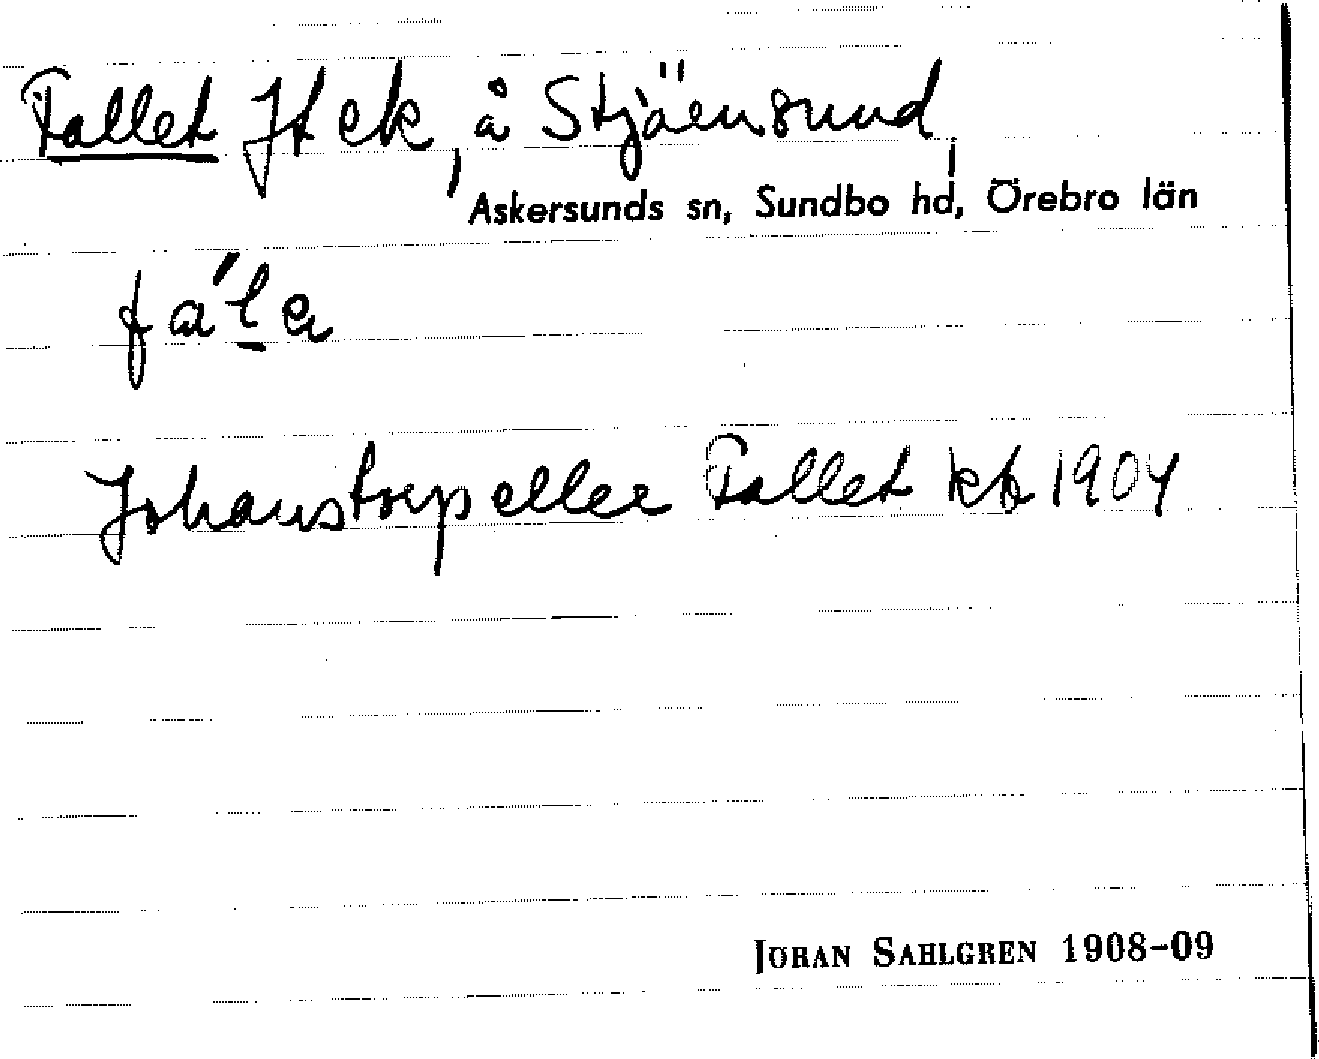 Fallet Jt ek, å Stjärnsund,
Askersunds sn, Sundbo hd, Örebro län
Johanstorp eller Fallet kk 1904
JÖRAN SAHLGREN 1908-09